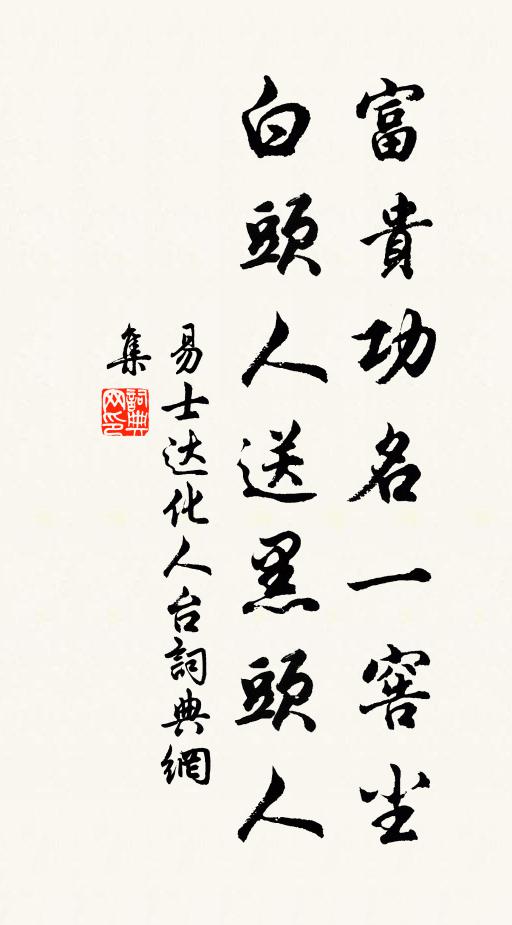 富貴功名一窖尘
白頭人送黑頭人
易士达化人台詞典網
集
詞典网印